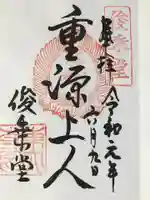 奉拝 令和元年
六月九日
重源上人
俊乗堂
俊乗堂